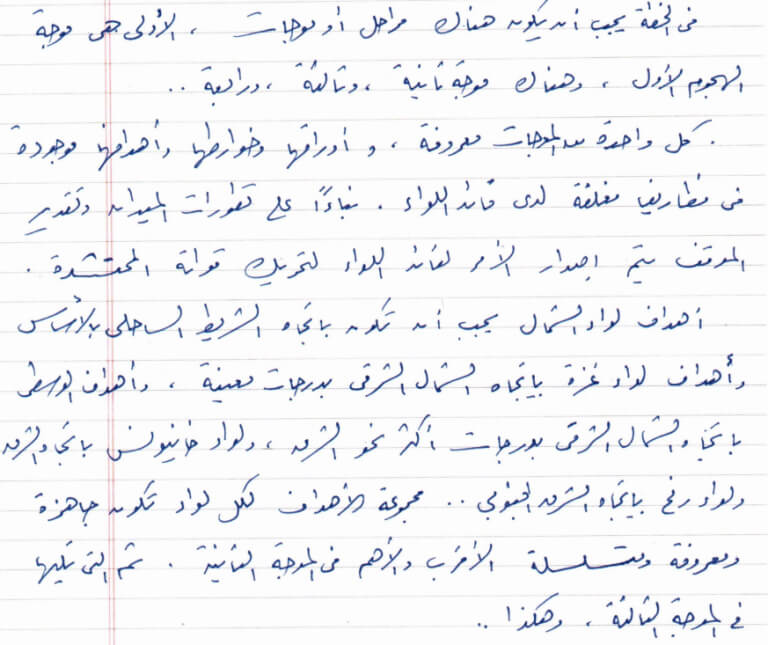 فى الخطة يجب أن يكون هناك مراحل أو موجات ، الأولى هى موجة
الهجوم الأول ، وهناك موجة ثانية ، وثالثة ، ورابعة ..
. كل واحدة من الموجات معروفة ، و أوراقها وخوارطها وأهدافها موجودة
فى مظاريف مغلقة لدى قائد اللواء . بناءًا على تطورات الميدان وتقدير
الموقف يتم إصدار الأمر لقائد اللواء لتحريك قواته المحتشدة .
أهداف لواء الشمال يجب أن تكون باتجاه الشريط الساحلى بالأساس
وأهداف لواء غزة باتجاه الشمال الشرقى بدرجات معينة ، وأهداف الوسطى
باتجاه الشمال الشرقى بدرجات أكثر نحو الشرق ، ولواء خانيونس باتجاه الشرق
ولواء رفح باتجاه الشرق الجنوبي .. مجموعة الأهداف لكل لواء تكون جاهزة
ومعروفة ومتسلسلة الأقرب والأهم فى الموجة الثانية . ثم التى تليها
في الموجة الثالثة ، وهكذا ..